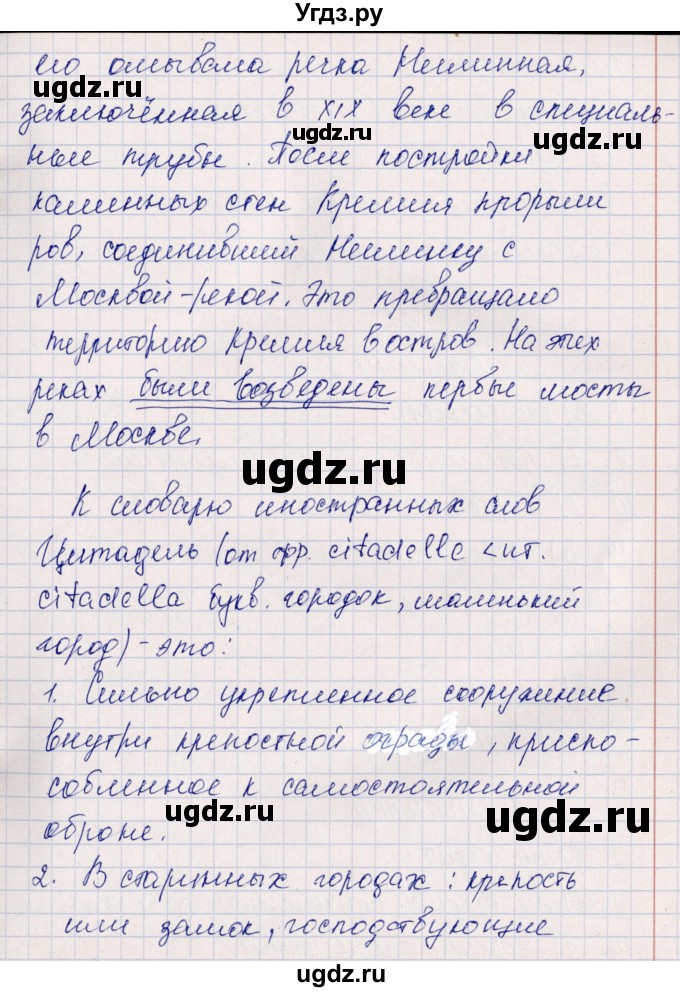 Угдз.ру
его омывала речка Неглинная,
ugdz.ru ugdz.ru
заключённая в XIX веке в специаль-
ugdz.ru
ные трубы. После постройки
ugdz.ru
каменных стен Кремля прорыли
ugdz.ru ugdz.ru
ров, соединивший Неглинку с
Москвой-рекой. Это превращало
ugdz.ru
территорию Кремля в остров. На этих
ugdz.ru
реках были возведены первые мосты
в Москве.
ugdz.ru
К словарю иностранных слов
Цитадель (от фр. citadelle < ит.
ugdz.ru
citadella букв. городок, маленький
город) - это:
ugdz.ru
1. Сильно укрепленное сооружение
ugdz.ru
внутри крепостной ограды, приспо-
собленное к самостоятельной
ugdz.ru ugdz.ru
обороне.
2. В старинных городах: крепость
ugdz.ru
или замок, господствующие
ugdz.ru
ugdz.ru